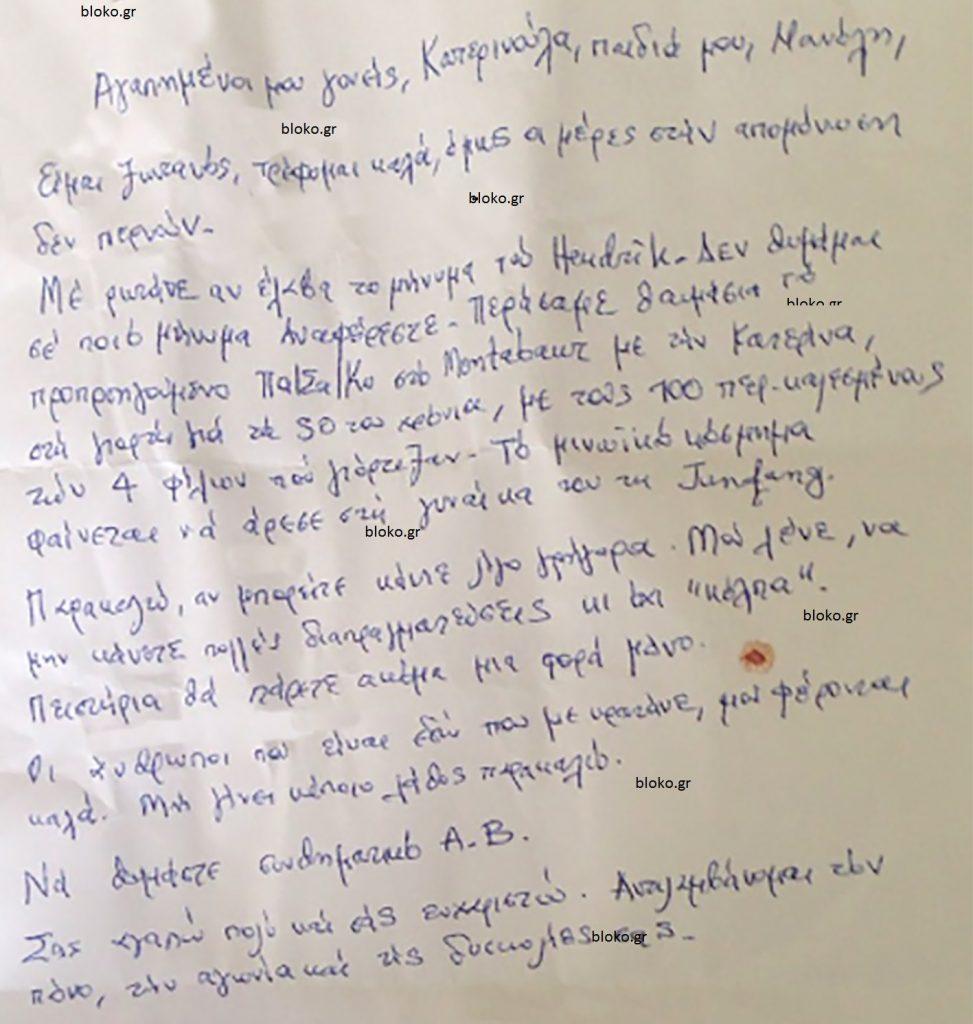 bloko.gr
Αγαπημένοι μου γονείς, Κατερινούλα, παιδιά μου, Μανώλη,
bloko.gr
Είμαι ζωντανός, τρέφομαι καλά, όμως οι μέρες στην απομόνωση
bloko.gr
δεν περνούν.
Με ρωτάνε αν έλαβα το μήνυμα του Hendrik. Δεν θυμάμαι
σε ποιό μήνυμα αναφέρεστε. Περάσαμε θαυμάσια το
bloko.gr
προπροηγούμενο Παι/Σα/Κο στο Montabaur με την Κατερίνα,
στη γιορτή γιά τα 50 του χρόνια, με τους 100 περ. καλεσμένους
των 4 φίλων πού γιόρταζαν. Τό μινωϊκό κόσμημα
φαίνεται νά άρεσε στή γυναίκα του τη Junfang.
bloko.gr
Παρακαλώ, αν μπορείτε κάντε λίγο γρήγορα. Μού λένε, να
μην κάνετε πολλές διαπραγματεύσεις κι όχι "κόλπα".
bloko.gr
Πειστήρια θά πάρετε ακόμα μια φορά μόνο.
Οι άνθρωποι που είναι εδώ που με κρατάνε, μού φέρονται
καλά. Μη γίνει κάποιο λάθος παρακαλώ.
bloko.gr
Νά θυμάστε συνθηματικό Α.Β.
Σας αγαπώ πολύ και σάς ευχαριστώ. Αντιλαμβάνομαι τον
bloko.gr
πόνο, την αγωνία και τις δυσκολίες σας.